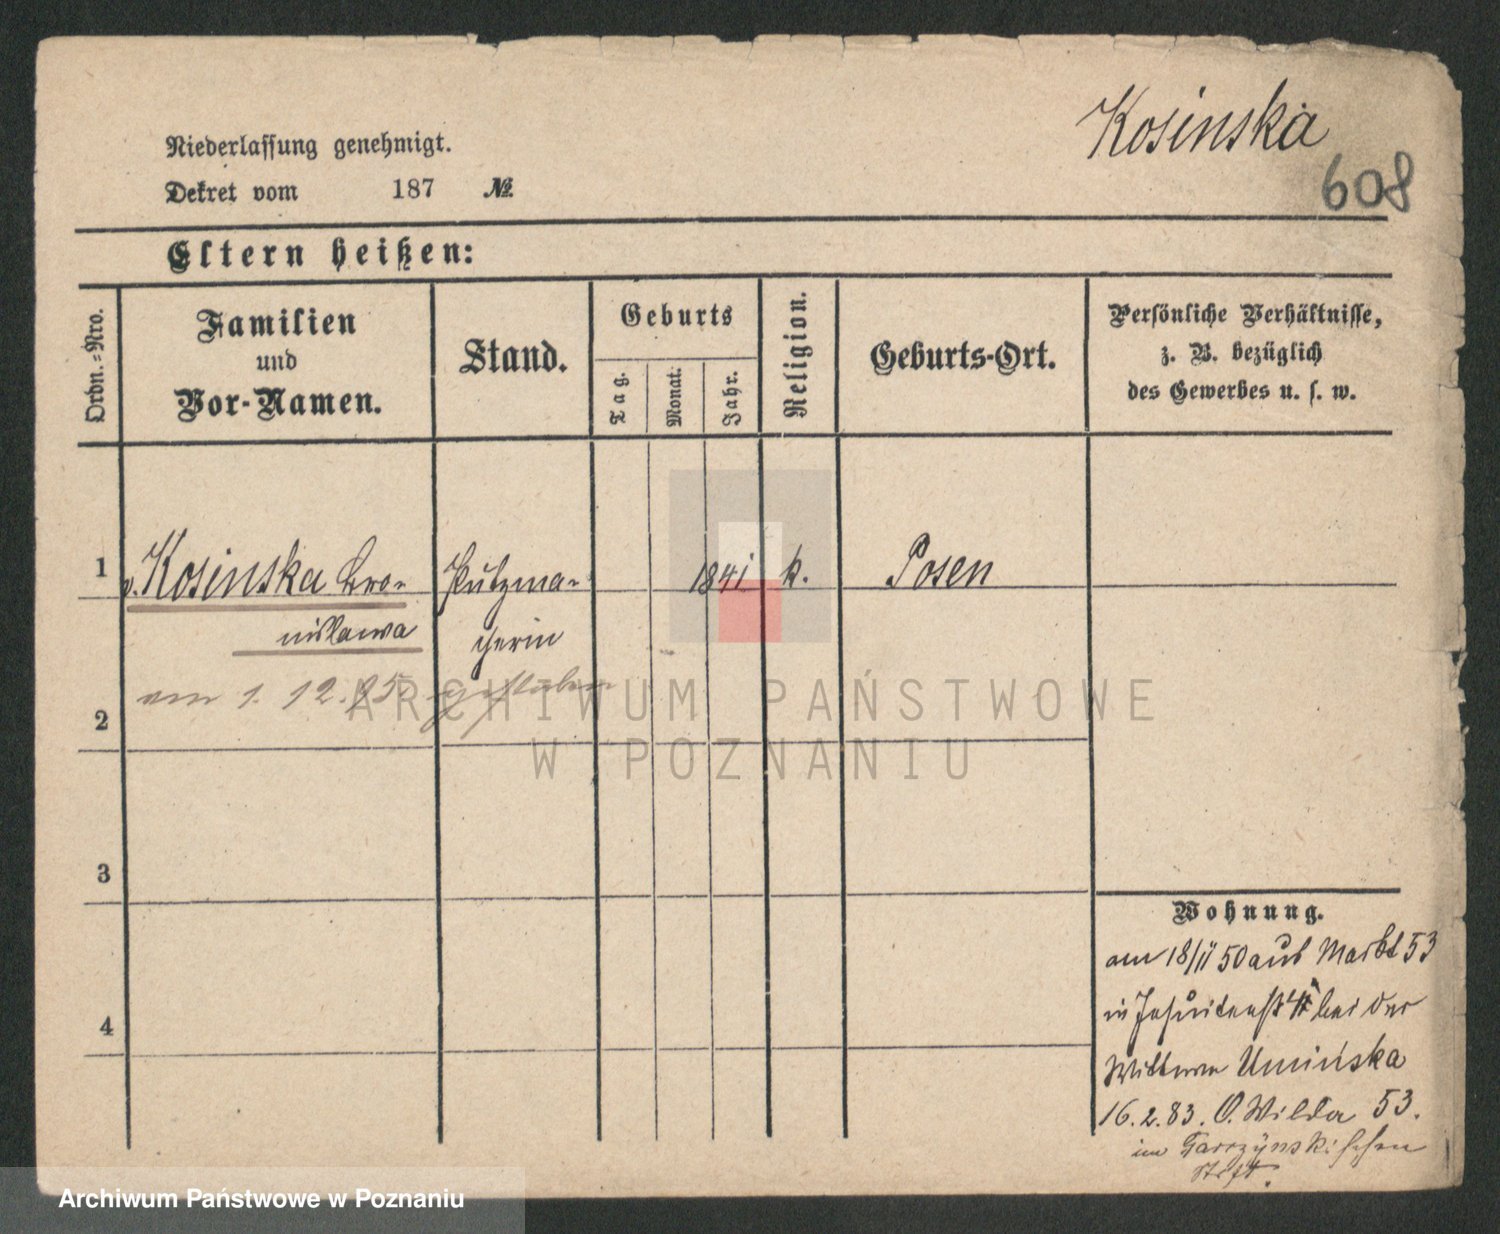 Kosinska
608
Niederlassung genehmigt.
Dekret vom 187 №
Eltern heißen:
Ordn.-Nro.
Familien
und
Vor-Namen.
Stand.
Geburts
Tag.
Monat.
Jahr.
Religion.
Geburts-Ort.
Persönliche Verhältnisse,
z. B. bezüglich
des Gewerbes u. s. w.
1 v. Kosinska Bro- Putzma- 1841 k. Posen
nislawa cherin
am 1. 12. 95 gestorben
2
3
4
Wohnung.
am 18/11 50 aus Markt 53
in Jesuitenst bei der
Wittwe Umińska
16. 2. 83. O. Wilda 53.
im Garczynski schen
Stift.
ARCHIWUM PAŃSTWOWE
W POZNANIU
Archiwum Państwowe w Poznaniu